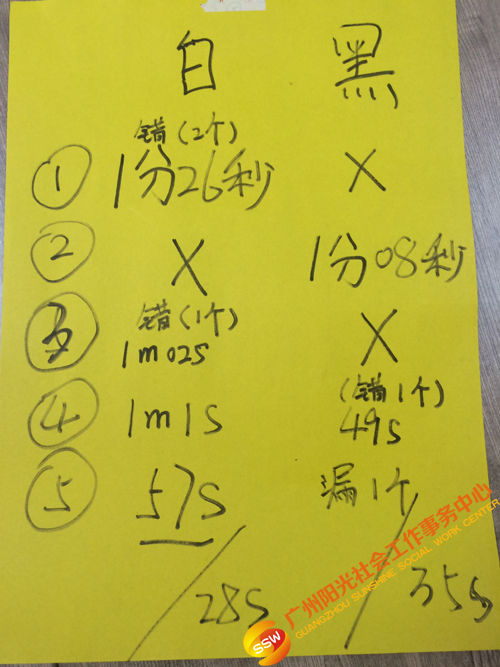 白 黑
错(2个)
① 1分26秒 X
② X 1分08秒
错(1个)
③ 1m02s X
(错1个)
④ 1m1s 49s
⑤ 57s 漏1个
/28s /35s
广州阳光社会工作事务中心
GUANGZHOU SUNSHINE SOCIAL WORK CENTER
SSW